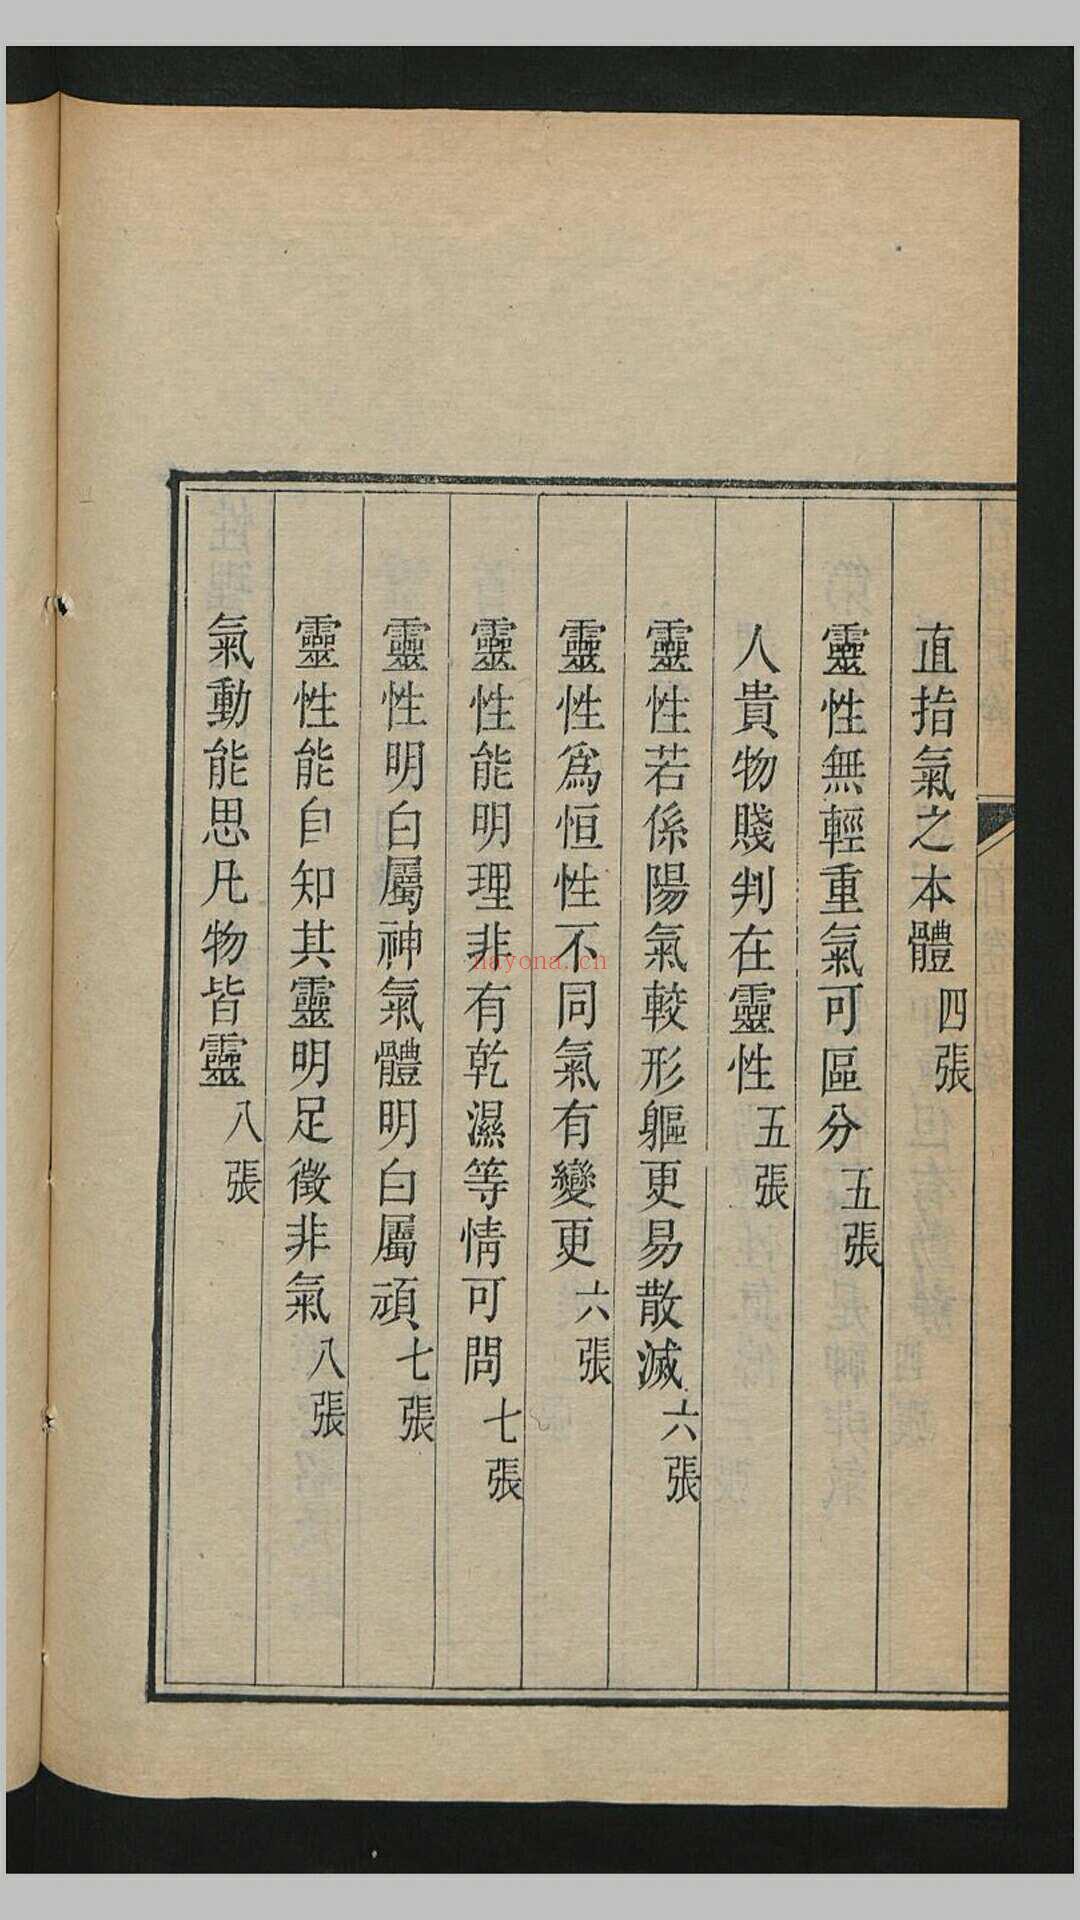 直指氣之本體 四張
靈性無輕重氣可區分 五張
人貴物賤判在靈性 五張
靈性若係陽氣較形軀更易散滅 六張
靈性爲恒性不同氣有變更 六張
靈性能明理非有乾濕等情可問 七張
靈性明白屬神氣體明白屬頑 七張
靈性能自知其靈明足徵非氣 八張
氣動能思凡物皆靈 八張
nayona.cn